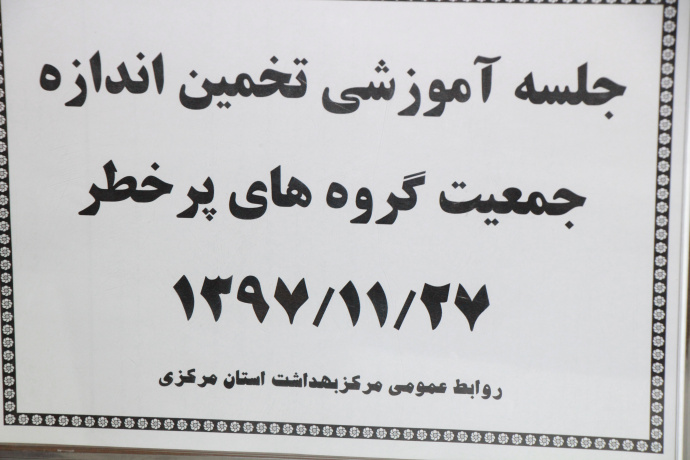 جلسه آموزشی تخمین اندازه
جمعیت گروه های پرخطر
۱۳۹۷/۱۱/۲۷
روابط عمومی مرکزبهداشت استان مرکزی